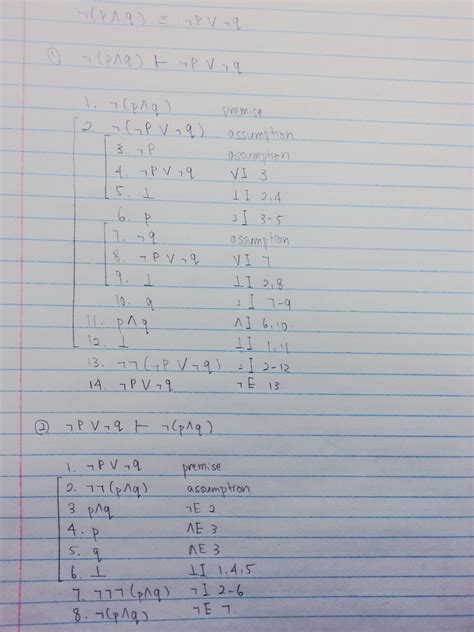 ¬(p∧q) ≡ ¬p∨¬q
① ¬(p∧q) ⊢ ¬p∨¬q
1. ¬(p∧q) premise
2. ¬(¬p∨¬q) assumption
3. ¬p assumption
4. ¬p∨¬q ∨I 3
5. ⊥ ⊥I 2,4
6. p ¬I 3-5
7. ¬q assumption
8. ¬p∨¬q ∨I 7
9. ⊥ ⊥I 2,8
10. q ¬I 7-9
11. p∧q ∧I 6,10
12. ⊥ ⊥I 1,11
13. ¬¬(¬p∨¬q) ¬I 2-12
14. ¬p∨¬q ¬E 13
② ¬p∨¬q ⊢ ¬(p∧q)
1. ¬p∨¬q premise
2. ¬¬(p∧q) assumption
3. p∧q ¬E 2
4. p ∧E 3
5. q ∧E 3
6. ⊥ ⊥I 1,4,5
7. ¬¬¬(p∧q) ¬I 2-6
8. ¬(p∧q) ¬E 7